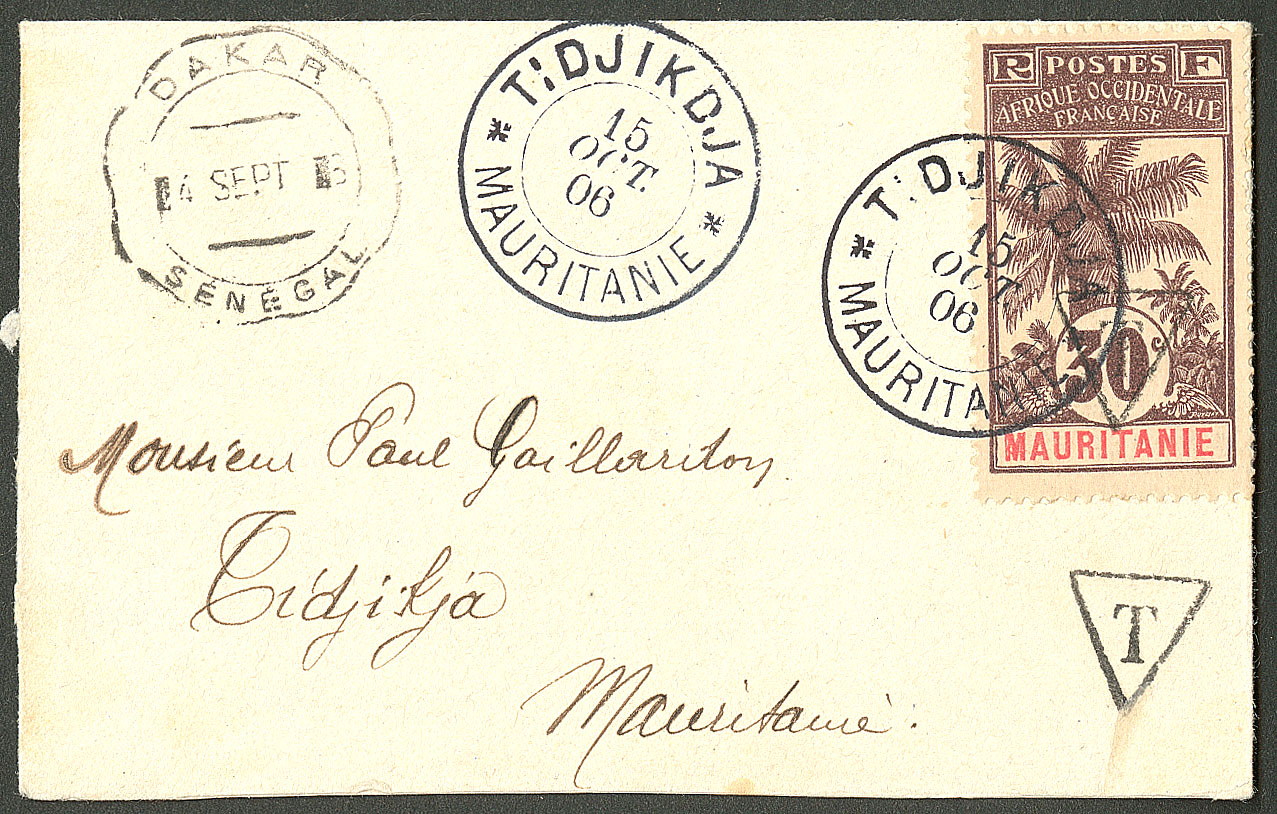 DAKAR
14 SEPT
SÉNÉGAL
TIDJIKDJA
15
OCT.
06
MAURITANIE
RF POSTES
AFRIQUE OCCIDENTALE
FRANÇAISE
30c
MAURITANIE
TIDJIKDJA
15
OCT.
06
MAURITANIE
T
Monsieur Paul Gaillardon
Tidjikja
Mauritanie.
T